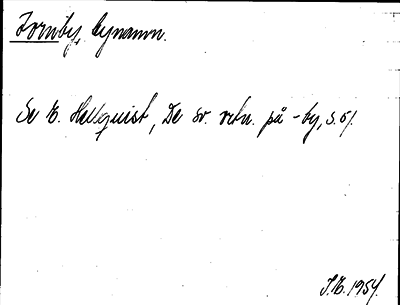 Tornby, bynamn.
Se E. Hellquist, De sv. ortn. på -by, s. 61.
J.E. 1954.